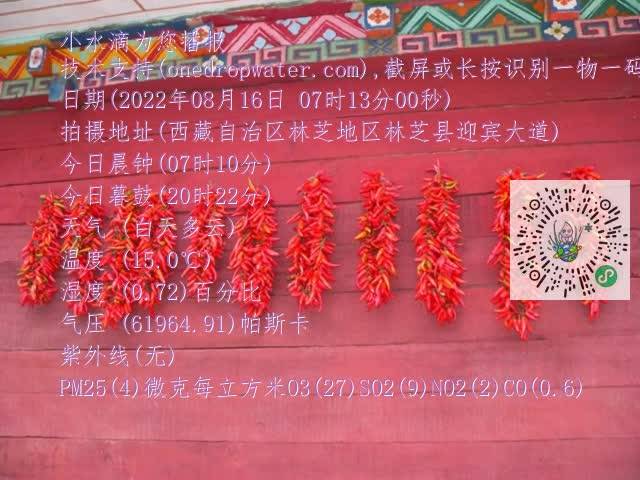 小水滴为您播报
技术支持(onedropwater.com),截屏或长按识别一物一码
日期(2022年08月16日 07时13分00秒)
拍摄地址(西藏自治区林芝地区林芝县迎宾大道)
今日晨钟(07时10分)
今日暮鼓(20时22分)
天气 (白天多云)
温度 (15.0℃)
湿度 (0.72)百分比
气压 (61964.91)帕斯卡
紫外线(无)
PM25(4)微克每立方米O3(27)SO2(9)NO2(2)CO(0.6)